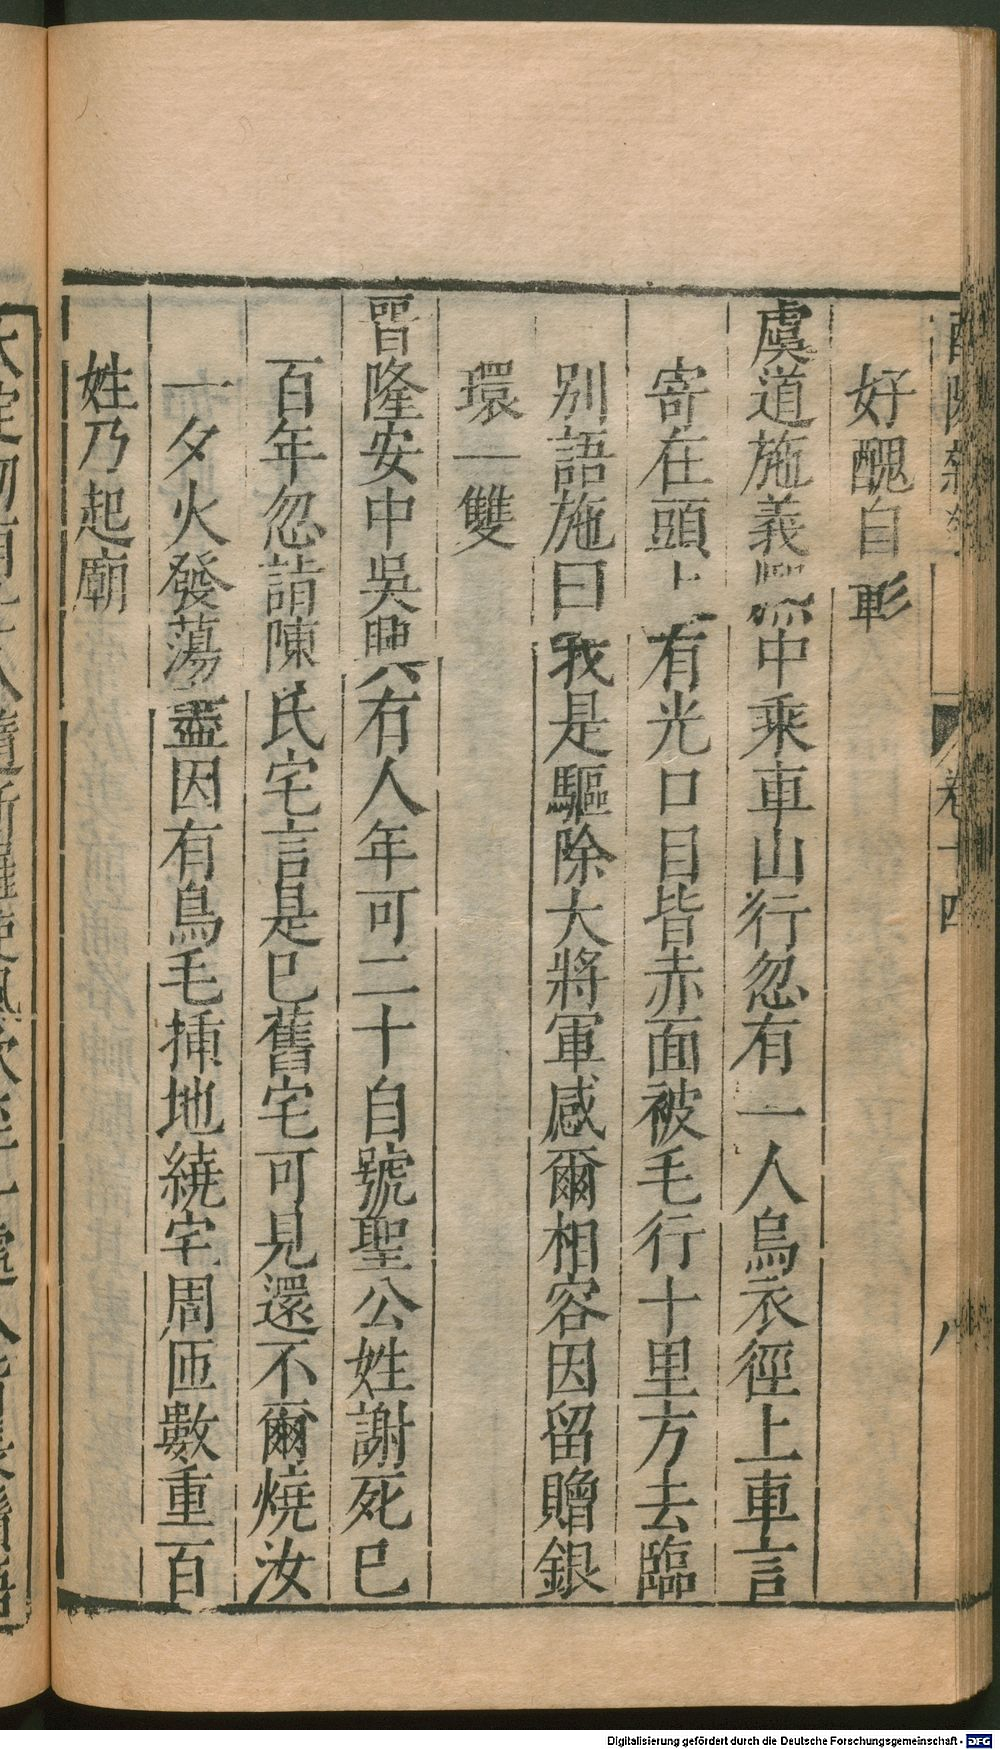 好醜自彰
虞道施義熙中乘車山行忽有一人烏衣徑上車言
寄在頭上有光口目皆赤面被毛行十里方去臨
別語施曰我是驅除大將軍感爾相容因留贈銀
環一雙
晉隆安中吳興有人年可二十自號聖公姓謝死已
百年忽詣陳氏宅言是已舊宅可見還不爾燒汝
一夕火發蕩盡因有鳥毛揷地繞宅周匝數重百
姓乃起廟
卷十四
八
Digitalisierung gefördert durch die Deutsche Forschungsgemeinschaft - DFG